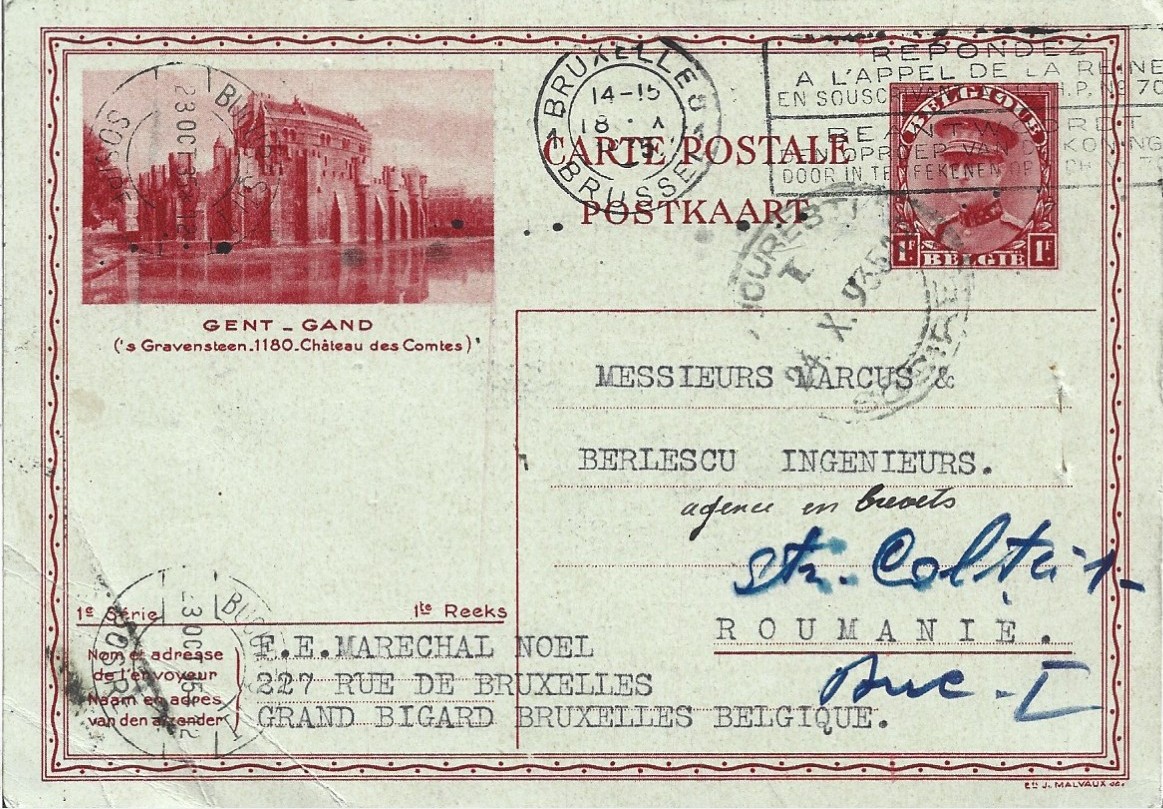 BRUXELLES
14-15
18 X
BRUSSEL
REPONDEZ
A L'APPEL DE LA REINE
EN SOUSCRIVANT H.P. No 70
BEANTWOORDT
OPROEP VAN DE KONING
DOOR IN TE TEEKENEN OP
CARTE POSTALE
POSTKAART
BELGIQUE
1F. 1F.
BELGIË
SOSIRE
23 OCT 35 12
BUCUREŞTI
GENT - GAND
('s Gravensteen-1180-Château des Comtes)
24. X. 935
SOSIRE
MESSIEURS MARCUS &
BERLESCU INGENIEURS.
agence en brevets
Str. Colței 1-
ROUMANIE.
Buc - I
1e Série 1ste Reeks
Nom et adresse
de l'envoyeur
Naam en adres
van den afzender
E.E.MARECHAL NOEL
227 RUE DE BRUXELLES
GRAND BIGARD BRUXELLES BELGIQUE.
Ets J. MALVAUX